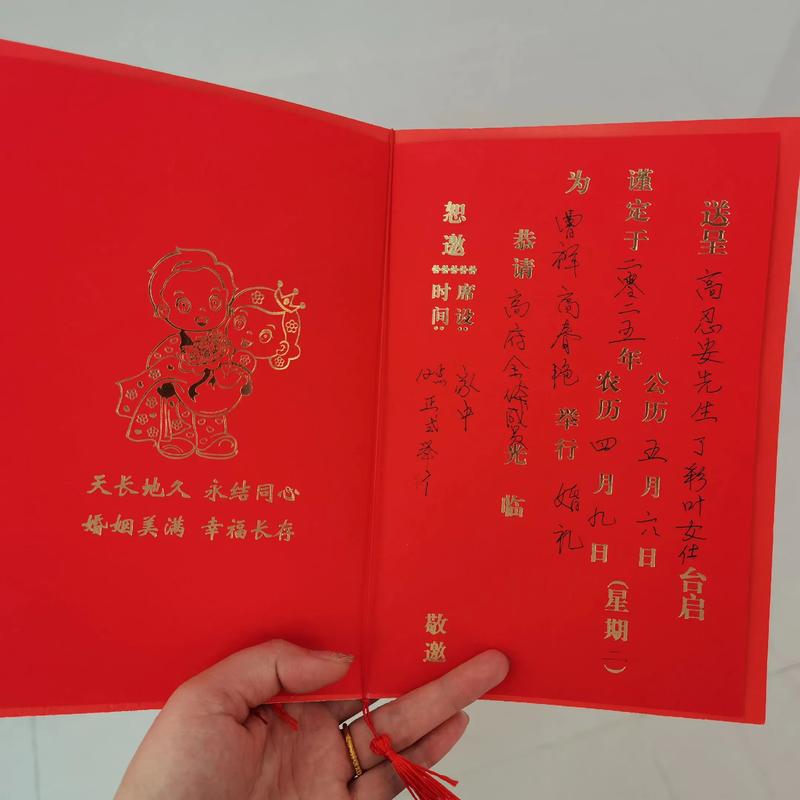 送呈 高忍安先生 丁彩叶女仕 台启
谨定于二零二五年 公历 五月六日 (星期二)
农历 四月九日
为 曹祥 高春艳 举行 婚礼
恭请 高府全体成员 光临
恕邀
席设: 家中
时间: 正式举行
敬邀
天长地久 永结同心
婚姻美满 幸福长存